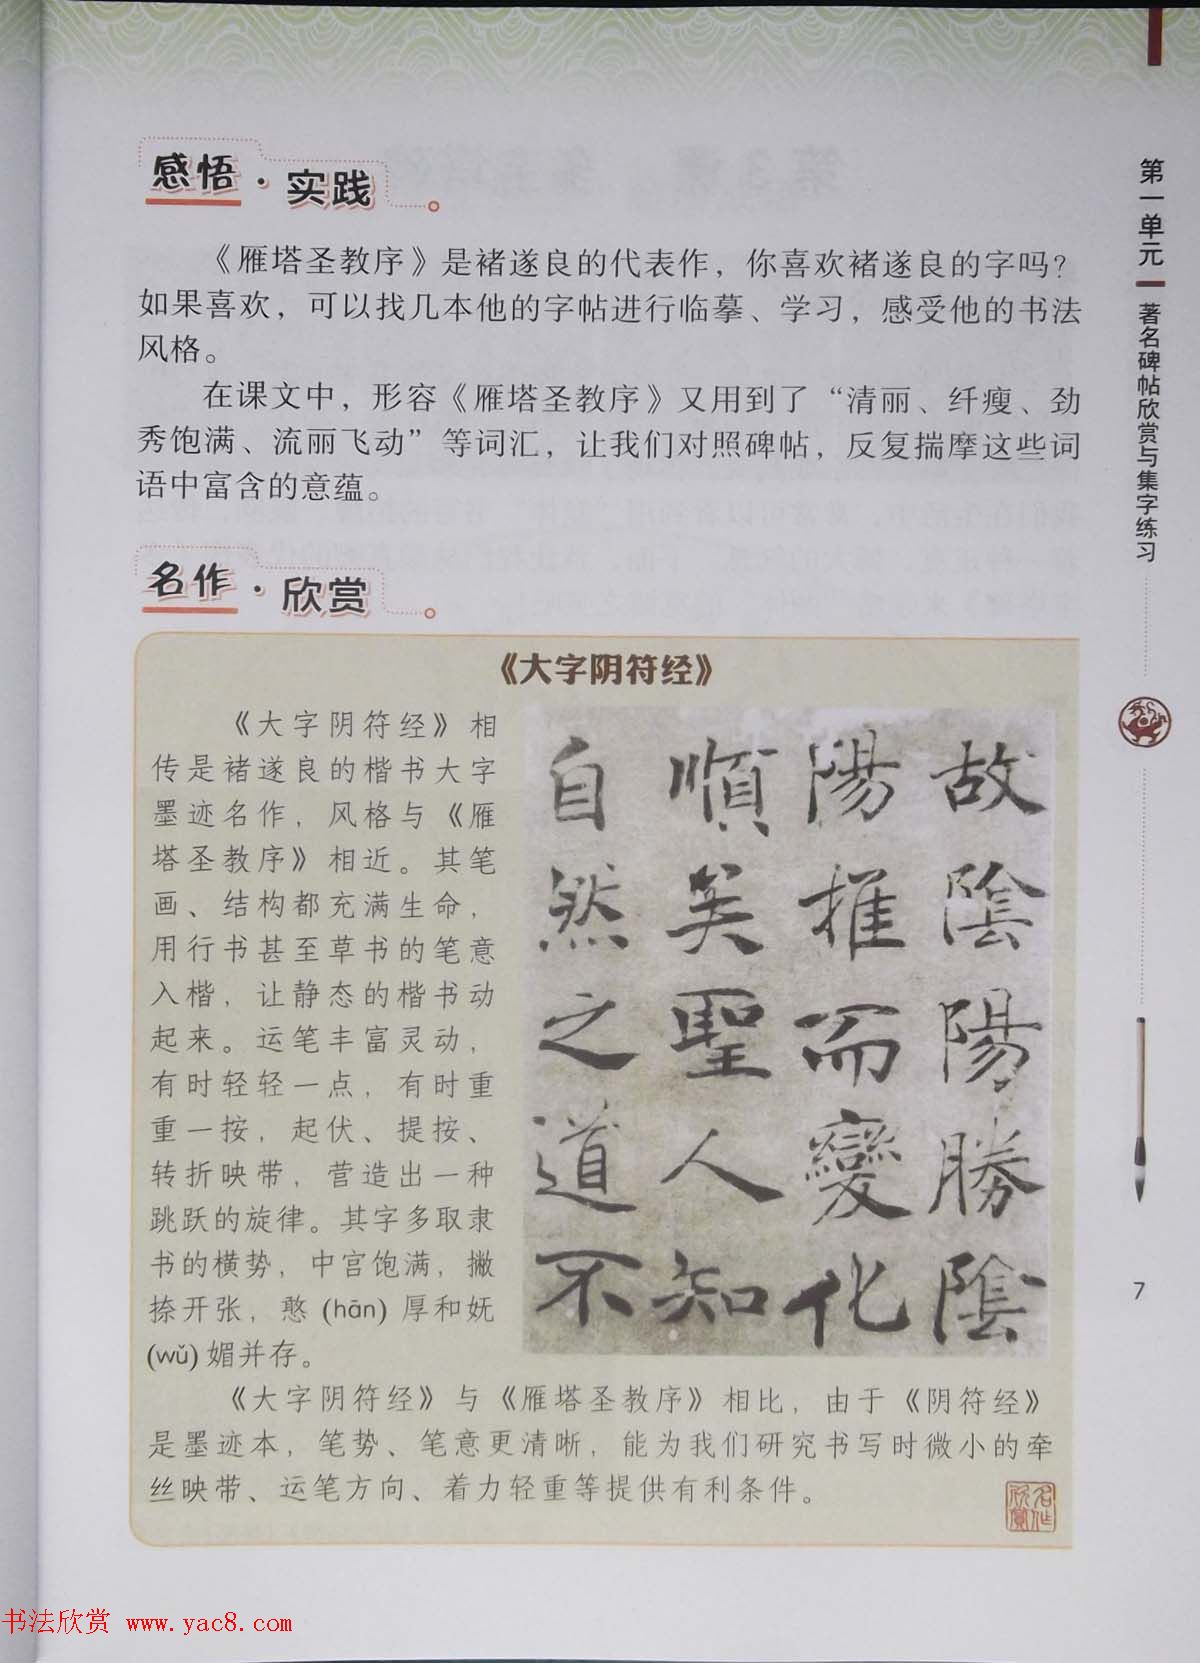 感悟·实践
《雁塔圣教序》是褚遂良的代表作，你喜欢褚遂良的字吗？
如果喜欢，可以找几本他的字帖进行临摹、学习，感受他的书法
风格。
在课文中，形容《雁塔圣教序》又用到了“清丽、纤瘦、劲
秀饱满、流丽飞动”等词汇，让我们对照碑帖，反复揣摩这些词
语中富含的意蕴。
名作·欣赏
《大字阴符经》
《大字阴符经》相
传是褚遂良的楷书大字
墨迹名作，风格与《雁
塔圣教序》相近。其笔
画、结构都充满生命，
用行书甚至草书的笔意
入楷，让静态的楷书动
起来。运笔丰富灵动，
有时轻轻一点，有时重
重一按，起伏、提按、
转折映带，营造出一种
跳跃的旋律。其字多取隶
书的横势，中宫饱满，撇
捺开张，憨 (hān) 厚和妩
(wǔ) 媚并存。
故陰陽勝陰
陽推而變化
順矣聖人知
自然之道不
《大字阴符经》与《雁塔圣教序》相比，由于《阴符经》
是墨迹本，笔势、笔意更清晰，能为我们研究书写时微小的牵
丝映带、运笔方向、着力轻重等提供有利条件。
名作
欣赏
第一单元
著名碑帖欣赏与集字练习
7
书法欣赏 www.yac8.com